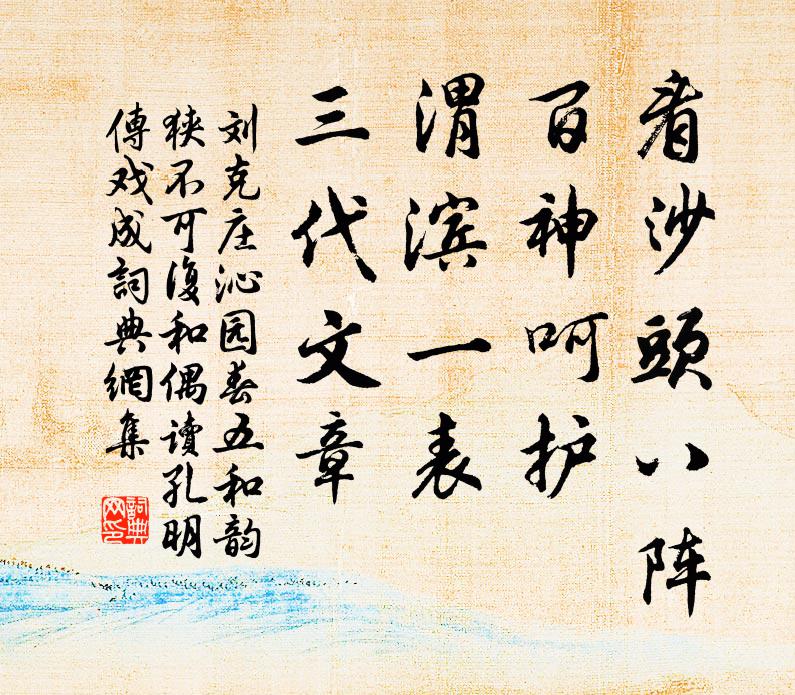 看沙頭八阵
百神呵护
渭滨一表
三代文章
刘克庄沁园春五和韵
狭不可復和偶读孔明
傳戏成詞典網集
詞典
网印